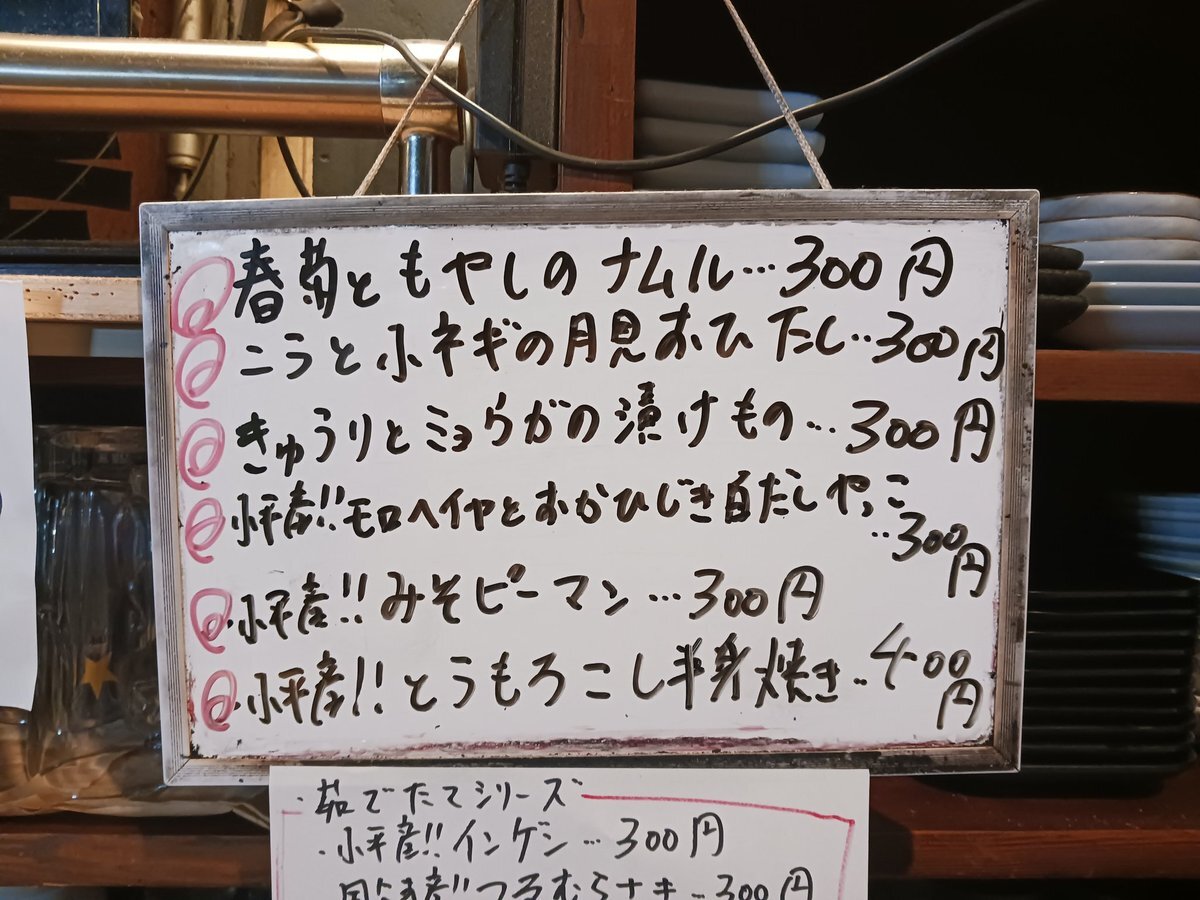 春菊ともやしのナムル…300円
こうと小ネギの月見おひたし…300円
きゅうりとミョウガの漬けもの…300円
小平産!!モロヘイヤとおかひじき白だしやっこ
…300円
小平産!!みそピーマン…300円
小平産!!とうもろこし半身焼き…400円
・茹でたてシリーズ
・小平産!!インゲン…300円
産!!つるむらさき…300円